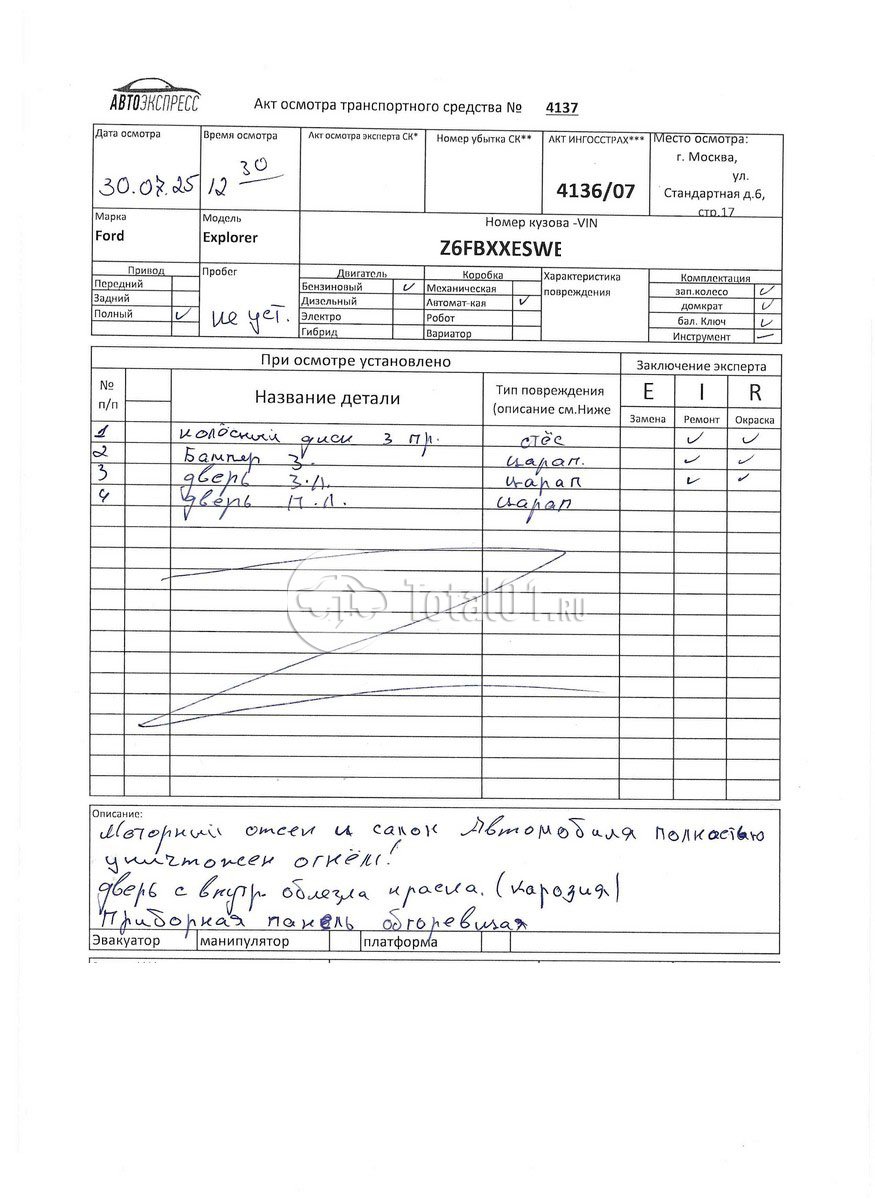 АВТОЭКСПРЕСС
Акт осмотра транспортного средства № 4137
Дата осмотра
30.07.25
Время осмотра
12 30
Акт осмотра эксперта СК*
Номер убытка СК**
АКТ ИНГОССТРАХ***
4136/07
Место осмотра:
г. Москва,
ул.
Стандартная д.6,
стр.17
Марка
Ford
Модель
Explorer
Номер кузова -VIN
Z6FBXXESWE
Привод
Передний
Задний
Полный ✓
Пробег
не уст.
Двигатель
Бензиновый ✓
Дизельный
Электро
Гибрид
Коробка
Механическая
Автомат-кая ✓
Робот
Вариатор
Характеристика
повреждения
Комплектация
зап.колесо ✓
домкрат ✓
бал. Ключ ✓
Инструмент —
При осмотре установлено
Заключение эксперта
№
п/п
Название детали
Тип повреждения
(описание см.Ниже
E I R
Замена Ремонт Окраска
1 колёсний диск з пр. стёс ✓ ✓
2 Бампер з. царап. ✓ ✓
3 дверь з.л. царап ✓ ✓
4 дверь п.л. царап
Total01.RU
Описание:
Моторний отсек и салок Автомобиля полкастью
уничтожен огнём!
дверь с внутр. облезла краска. (карозия)
Приборная панель обгоревшая
Эвакуатор манипулятор платформа